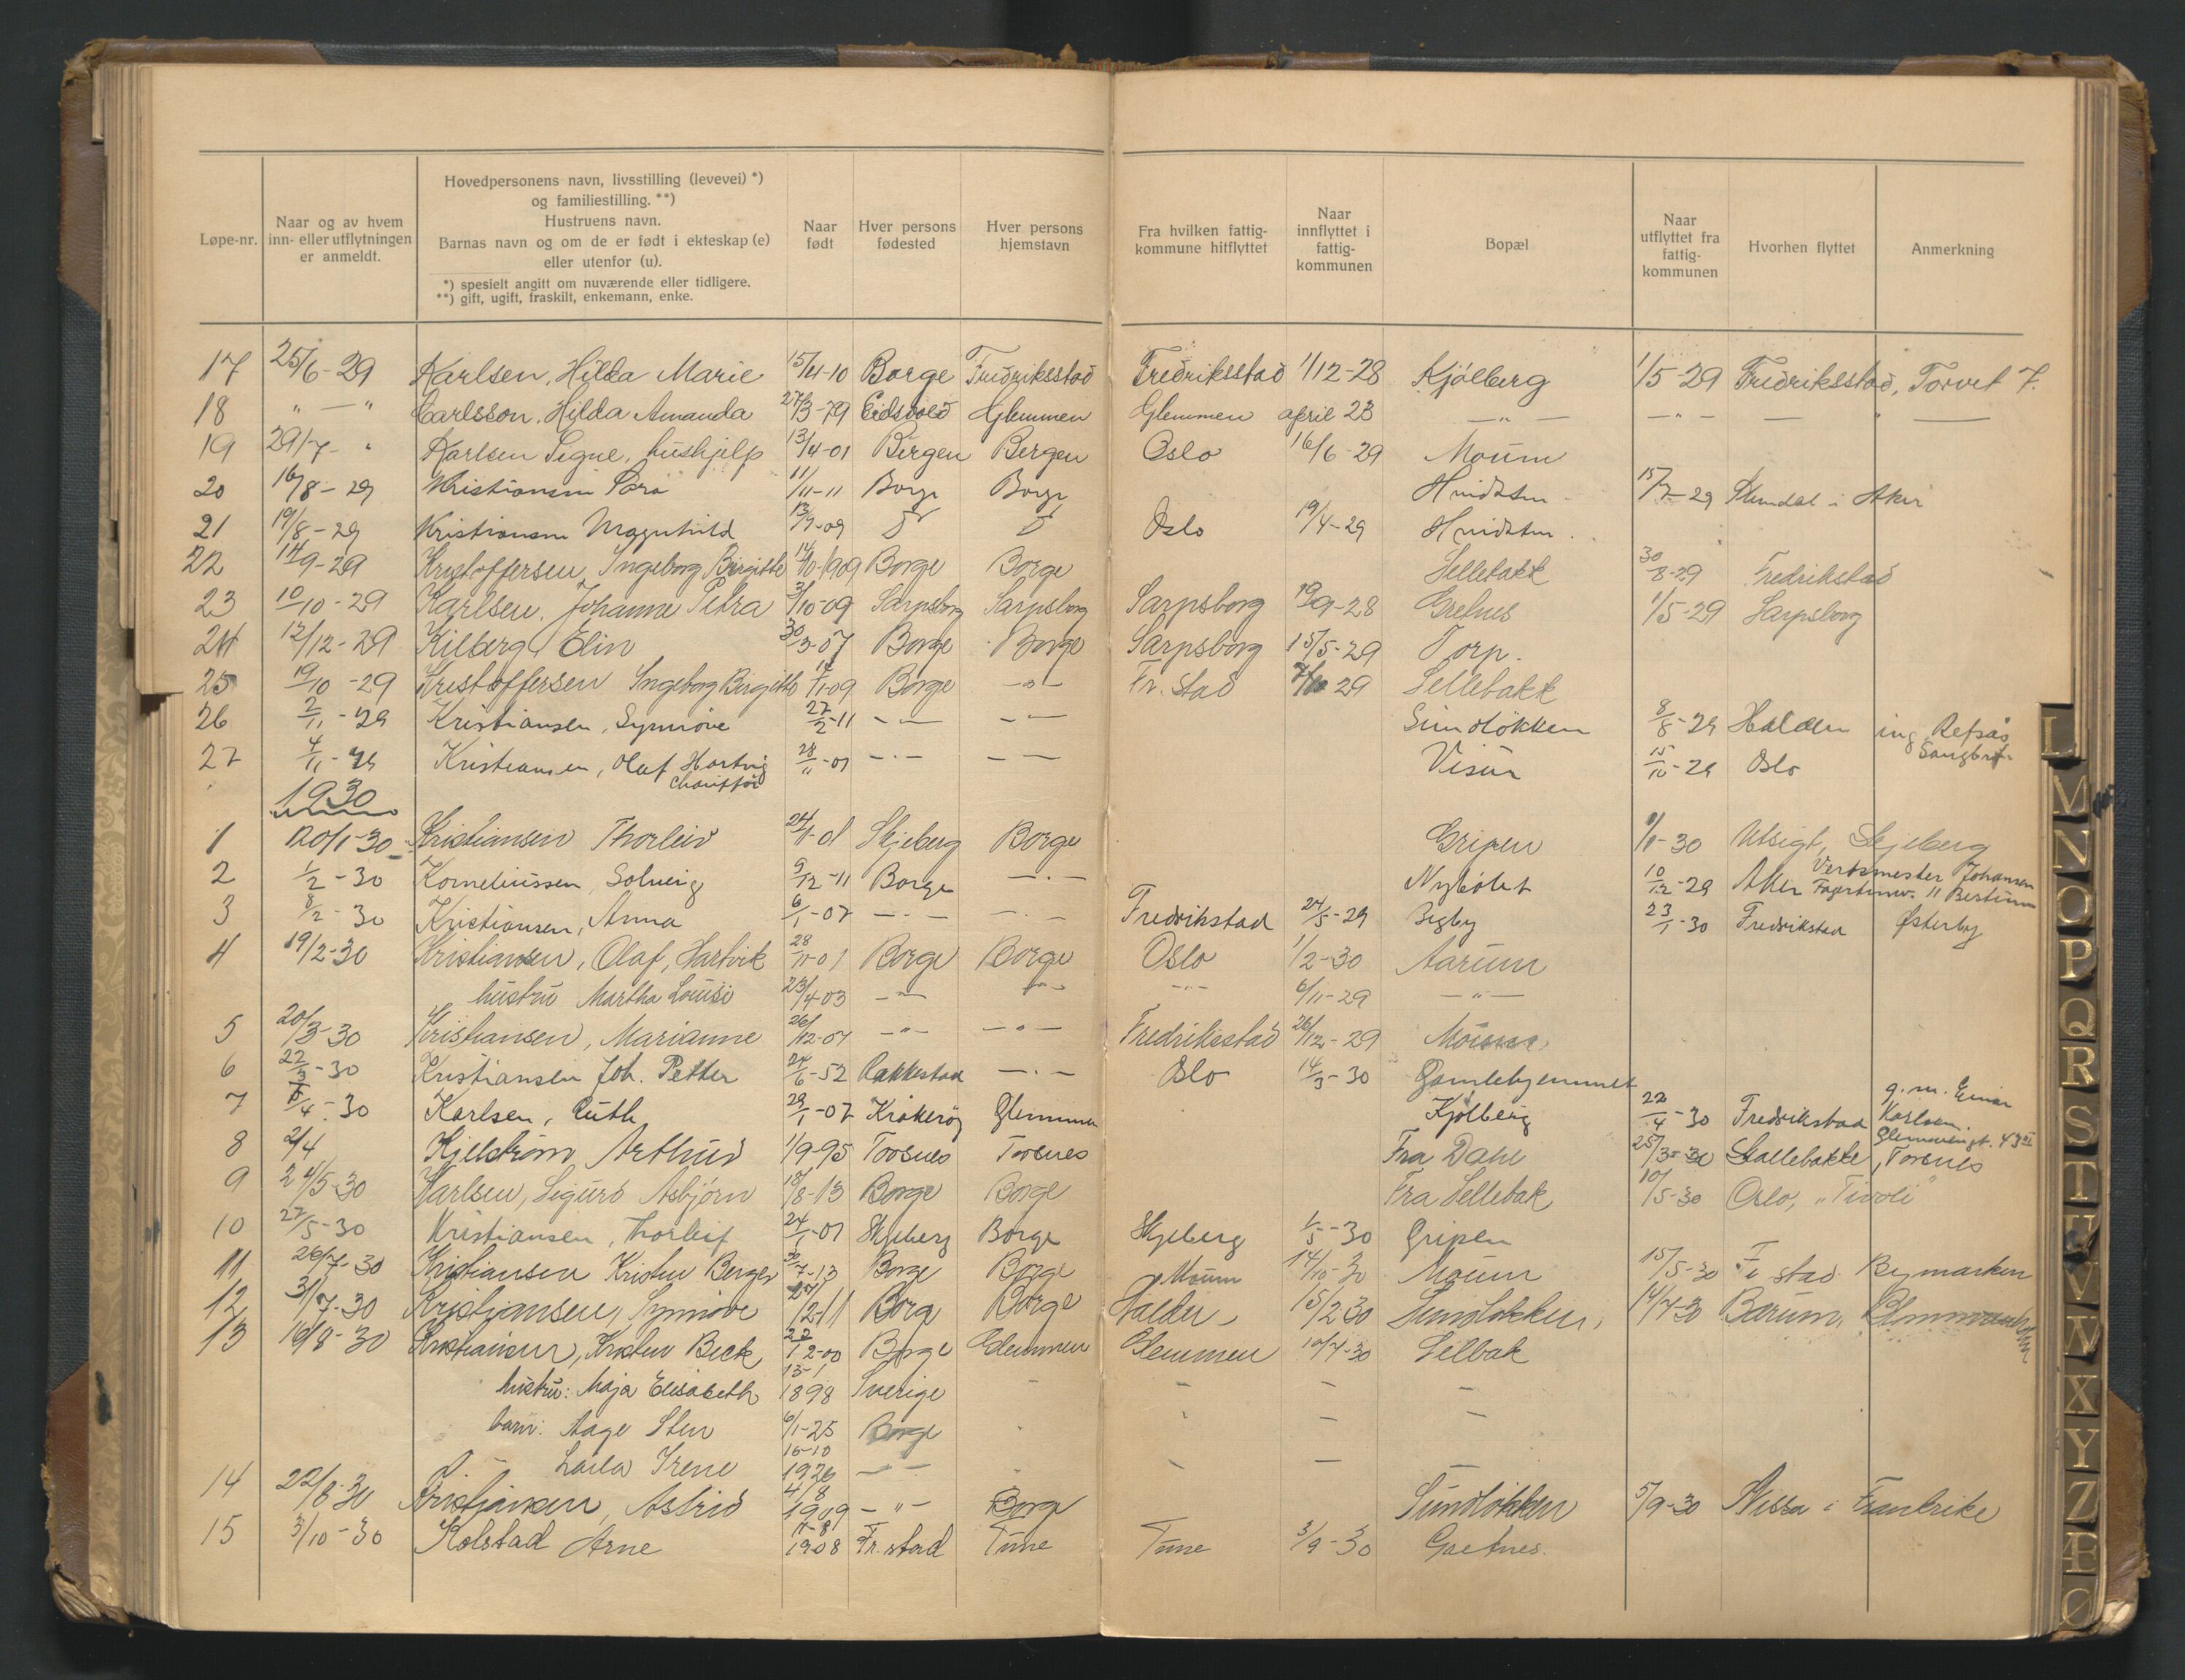 Løpe-nr.
Naar og av hvem inn- eller utflytningen er anmeldt.
Hovedpersonens navn, livsstilling (levevei) *)
og familiestilling. **)
Hustruens navn.
Barnas navn og om de er født i ekteskap (e)
eller utenfor (u).
*) spesielt angitt om nuværende eller tidligere.
**) gift, ugift, fraskilt, enkemann, enke.
Naar født
Hver persons fødested
Hver persons hjemstavn
Fra hvilken fattig-kommune hitflyttet
Naar innflyttet i fattig-kommunen
Bopæl
Naar utflyttet fra fattig-kommunen
Hvorhen flyttet
Anmerkning
17 25/6-29 Karlsen, Hilda Marie 15/4-10 Borge Fredriksstad Fredriksstad 1/12-28 Kjølberg 1/5-29 Fredriksstad, Torvet 7.
18 " — " Carlsson, Hilda Amanda 27/3-79 Eidsvold Glemmen Glemmen april 28 — " — — " — — " —
19 29/7- " Karlsen Signe, hushjelp 13/4-01 Bergen Bergen Oslo 16/6-29 Moum
20 16/8-29 Kristiansen 11/11-11 Borge Borge 15/7-29 i Aker
21 19/8-29 Kristiansen Magnhild 13/9-09 Oslo 19/4-29
22 14/9-29 Kristoffersen, Ingeborg Birgitte 14/10-1909 Borge Borge Sellebakk 30/8-29 Fredrikstad
23 10/10-29 Karlsen, Johanne Petra 3/10-09 Sarpsborg Sarpsborg Sarpsborg 19/9-28 Grefnes 1/5-29 Sarpsborg
24 12/12-29 Kilberg Elin 30/3-07 Borge Borge Sarpsborg 15/5-29 Torp.
25 19/10-29 Kristoffersen Ingeborg Birgitte 14/11-09 Borge — " — Fr. stad 29 Sellebakk
26 2/11-29 Kristiansen, Synnøve 27/2-11 — " — — " — Sundløkken 8/8-29 Halden ing Refsås
27 4/11-29 Kristiansen, Olaf Hartvig 28/11-01 — " — — — Visur 15/10-29 Oslo
chauffør
1930
1 20/1-30 Kristiansen Thorleiv 24/1-01 Skjeberg Borge Gripen 1/1-30 Utsigt, Skjeberg
2 1/2-30 Korneliussen, Solveig 9/12-11 Borge — " — 10/12-29 Aker Johansen
3 8/2-30 Kristiansen, Anna 6/1-07 — " — — " — Fredrikstad 24/5-29 Begby 23/1-30 Fredrikstad Østerby
4 19/2-30 Kristiansen, Olaf, Hartvik 28/11-01 Borge Borge Oslo 1/2-30 Aarum
hustru Martha Louise 23/4-03 — " — — " — — " — 6/11-29 — " —
5 20/3-30 Kristiansen, Marianne 26/12-07 — " — — " — Fredriksstad 26/12-29
6 22/3-30 Kristiansen Joh. Petter 24/6-52 Rakkestad — " — Oslo 14/3-30 Gamlehjemmet
7 5/4-30 Karlsen, Ruth 29/1-07 Kråkerøy Glemmen Kjølberg 22/4-30 Fredrikstad g.m. Einar Karlsen.
8 2/4 Kjellstrøm, Arthur 1/9-95 Torsnes Torsnes Fra Dahl 25/3-30 Stallebakke, Torsnes
9 24/5-30 Karlsen, Sigurd Asbjørn 18/8-13 Borge Borge Fra Sellebak 10/5-30 Oslo, "Tivoli"
10 27/5-30 Kristiansen, Thorleif 24/1-01 Skjeberg Borge Skjeberg 1/5-30 Gripen
11 26/7-30 Kristiansen Kristen Berger 30/7-13 Borge Borge Moum 14/10-30 Moum 15/5-30 stad Bymarken
12 31/7-30 Kristiansen, Synnøve 27/2-11 Borg Borge Halden 15/2-30 Sundløkken, 14/7-30 Bærum,
13 16/8-30 Kristiansen, Kristen Beck 22/12-00 Borge Glemmen Glemmen 10/7-30 Selbak
hustru: Maja Elisabeth 13-1 1898 Sverige - - - -
barn: Aage Sten 6/1-25 Borge - — —
- Laila Irene 16-10 1926 — " — - —
14 22/8-30 Kristiansen, Astrid 4/8 1909 — " — Borge Sundløkken 5/9-30 Nissa i Frankrike
15 3/10-30 Kolstad Arne 1908 Fr. stad Tune Tune 3/9-30
L
M
N
O
P
Q
R
S
T
U
V
W
X
Y
Z
Æ
Ø